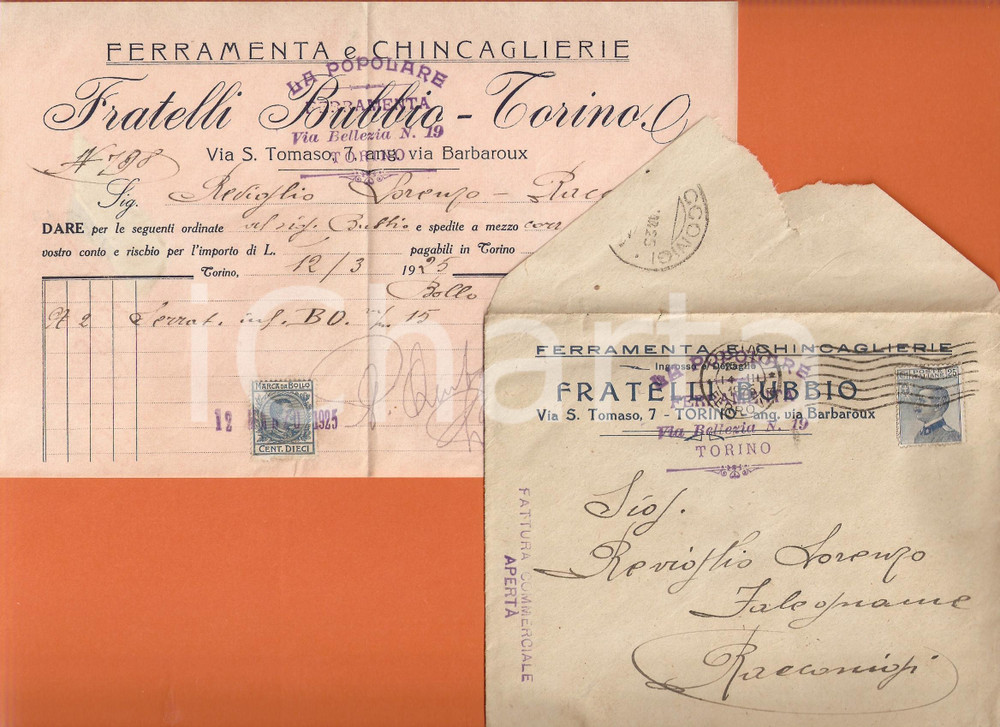 FERRAMENTA e CHINCAGLIERIE
LA POPOLARE
Fratelli Bubbio - Torino
FERRAMENTA
Via Bellezia N. 19
TORINO
Via S. Tomaso, 7, ang. via Barbaroux
N° 798
Sig. Reviglio Lorenzo - Racco
DARE per le seguenti ordinate al sig. Bubbio e spedite a mezzo corr
vostro conto e rischio per l'importo di L. pagabili in Torino
Torino, 12/3 1925
Bollo
N 2 Serrat. inf. BO. 15
MARCA DA BOLLO
CENT. DIECI
12 1925
iCharta
CCONIGI
FERRAMENTA E CHINCAGLIERIE
Ingrosso e Dettaglio
LA POPOLARE
FRATELLI BUBBIO
FERRAMENTA
Via S. Tomaso, 7 - TORINO - ang. via Barbaroux
Via Bellezia N. 19
TORINO
FATTURA COMMERCIALE
APERTA
Sig.
Reviglio Lorenzo
Falegname
Racconigi